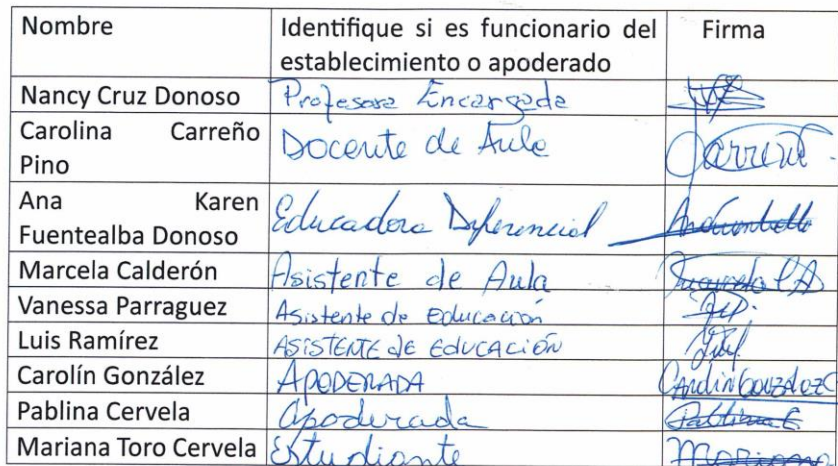 Nombre Identifique si es funcionario del establecimiento o apoderado Firma
Nancy Cruz Donoso Profesora Encargada
Carolina Carreño Pino Docente de Aula Carreño
Ana Karen Fuentealba Donoso Educadora Diferencial
Marcela Calderón Asistente de Aula
Vanessa Parraguez Asistente de Educación
Luis Ramírez ASISTENTE de EDUCACIÓN
Carolín González APODERADA Carolin González C
Pablina Cervela apoderada Pablina C
Mariana Toro Cervela Estudiante Mariana